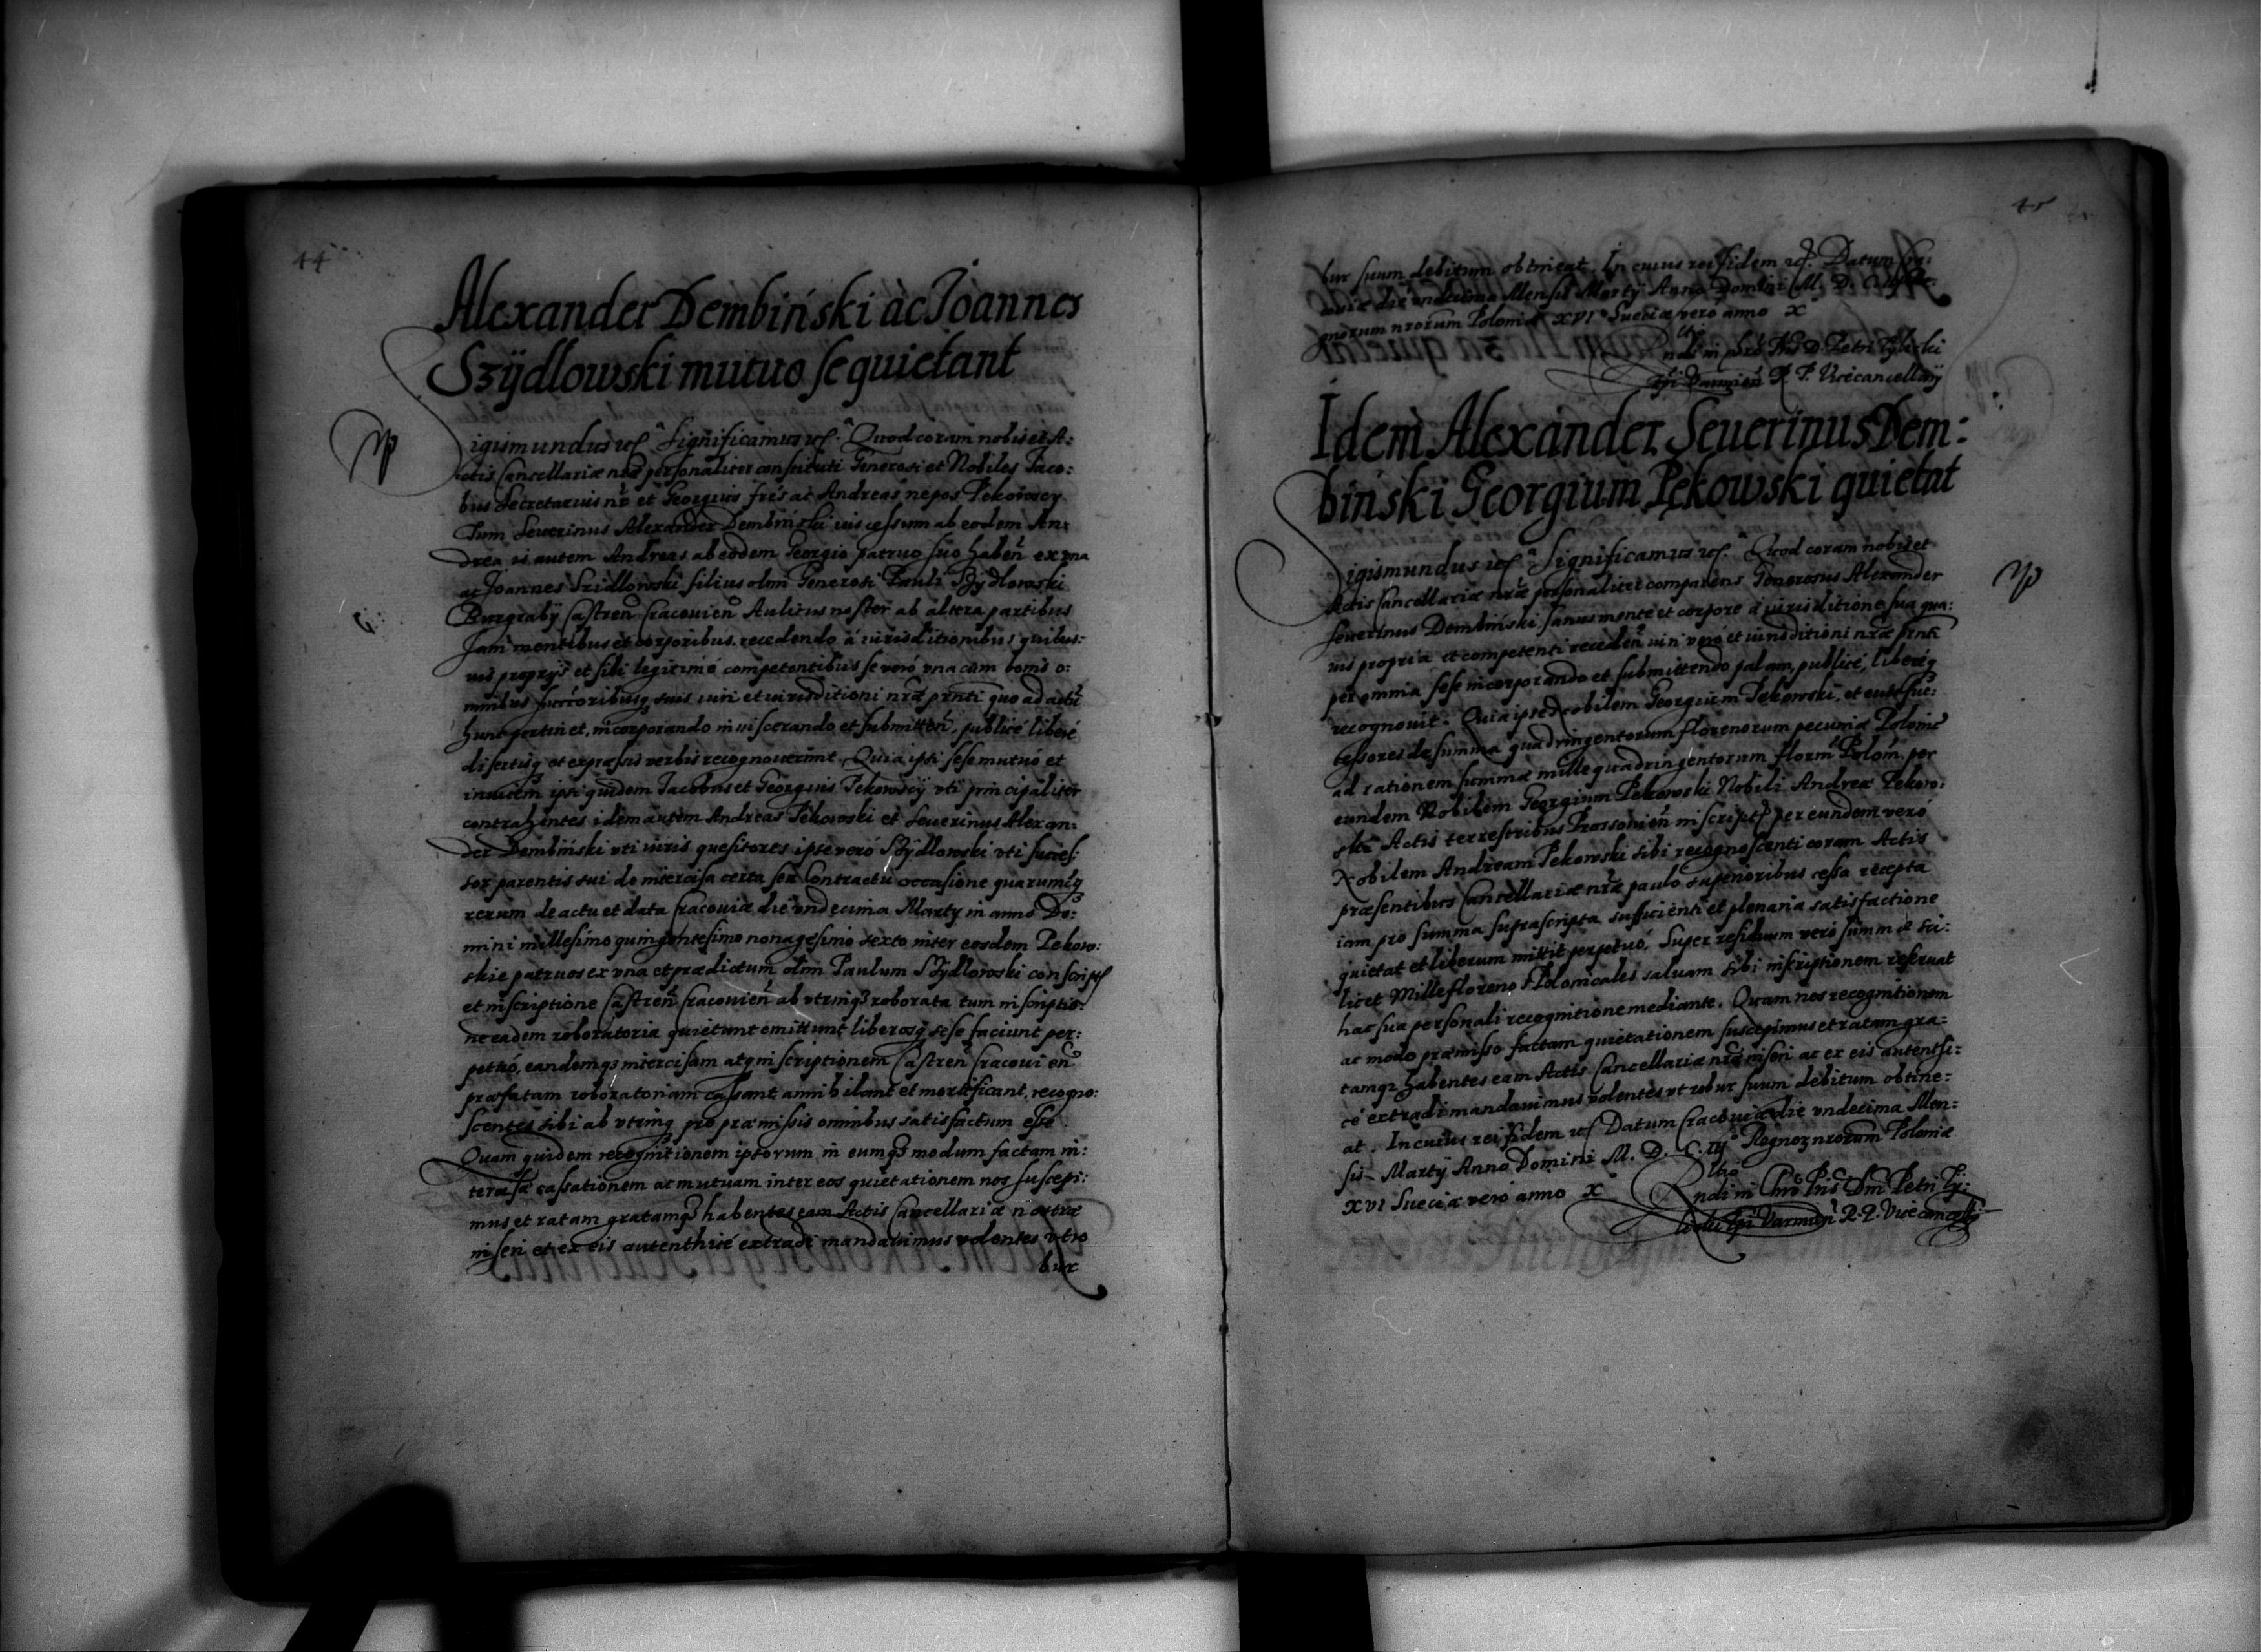 44
Alexander Dembiński ac Joannes
Szÿdlowski mutuo se quietant
Sigismundus etc. Significamus etc. Quod coram nobis et A:
ctis Cancellariæ nrae personaliter constituti Generosi et Nobiles Jaco:
bus Secretarius nr et Georgius frēs ac Andreas nepos Pekowscy
Tum Seuerinus Alexander Dembiński ius cessum ab eodem An:
drea is autem Andreas ab eodem Georgio patruo suo haben ex vna
ac Joannes Szidlowski filius olim Generosi Pauli Szÿdlowski
Burgrabÿ Castren Cracouien Aulicus noster ab altera partibus
sani mentibus et corporibus recedendo à iurisditionibus quibus:
uis proprÿs et sibi legitime competentibus se verò vna cum bonis o:
mnibus succōribusq suis iuri et iurisditioni nræ prnti quo ad actū
hunc pertinet, incorporando inuiscerando et submitten, publicè liberè
disertisq et expressis verbis recognouerunt. Quia ipsi sese mutuò et
inuicem ipsi quidem Jacobus et Georgius Pekowscÿ vti principaliter
contrahentes idem autem Andreas Pekowski et Seuerinus Alexan:
der Dembiński vti iuris quesitores ipse verò Szÿdlowski vti succes:
sor parentis sui de intercisa certa seu Contractu occasione quarumcq
rerum de actu et data Cracouiæ die vndecima Martÿ in anno Do:
mini millesimo quingentesimo nonagesimo sexto inter eosdem Pekow:
skie patruos ex vna et prædictum olim Paulum Szÿdlowski conscript
et inscriptione Castren Cracouien ab vtrinq roborata tum inscriptio:
ne eadem roboratoria quietant emittunt liberosq sese faciunt per:
petuò, eandemq intercisam atq inscriptionem Castren Cracouien
præfatam roboratoriam cassant annihilant et mortificant, recogno:
scentes sibi ab vtrinq pro præmissis omnibus satisfactum esse.
Quam quidem recognitionem ipsorum in eumq modum factam in:
tercisæ cassationem ac mutuam inter eos quietationem nos suscepi:
mus et ratam gratamq habentes eam Actis Cancellariæ nostræ
inseri et ex eis autenthicè extradi mandauimus volentes vt ro
bur
45
bur suum debitum obtineat. In cuius rei fidem etc. Datum Cra:
couiæ die vndecima Mensis Martÿ Anno Domini M. D. C. iij Re:
gnorum nrorum Poloniæ XVI Sueciæ vero anno X
Rndi in Chro Pris D. Petri Tÿlicki
Epi Varmien R. P. Vicecancellarÿ
Idem Alexander Seuerinus Dem:
biński Georgium Pękowski quietat
Sigismundus etc. Significamus etc. Quod coram nobis et
Actis Cancellariæ nræ personaliter comparens Generosus Alexander
Seuerinus Dembiński, sanus mente et corpore à iurisditione sua qua:
uis propria et competenti receden iuri verò et iurisditioni nræ prnti
per omnia sese incorporando et submittendo palam, publicè, liberèq
recognouit. Quia ipse Nobilem Georgium Pekowski, et eius suc:
cessores de summa quadringentorum florenorum pecuniæ Polonic
ad rationem summæ mille quadringentorum florm Polon. per
eundem Nobilem Georgium Pekowski Nobili Andreæ Pekow:
ski Actis terrestribus Proszouien inscript per eundem verò
Nobilem Andream Pekowski sibi recognoscenti coram Actis
præsentibus Cancellariæ nræ paulo superioribus cessa recepta
iam pro summa suprascripta sufficienti et plenaria satisfactione
quietat et liberum mittit perpetuò, Super residuum verò summæ sci:
licet Mille floreno Polonicales saluam sibi inscriptionem reseruat
hac sua personali recognitione mediante. Quam nos recognitionem
ac modo præmisso factam quietationem suscepimus et ratam gra:
tamq habentes eam Actis Cancellariæ nræ inseri ac ex eis autenthi:
cè extradi mandauimus volentes vt robur suum debitum obtine:
at. In cuius rei fidem etc Datum Cracouiæ die vndecima Men:
sis Martÿ Anno Domini M. D. C. iij Regnor nrorum Poloniæ
XVI Sueciæ vero anno X Rndi in Chro Pris Dni Petri Tÿ:
licki Epi Varmien R. P. Vicecancellÿ